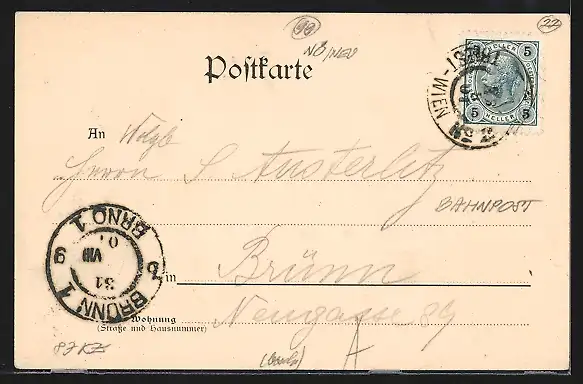 99
22
NÖ/NEU
Postkarte
5 HELLER 5
5 HELLER 5
TRIEST-WIEN
An Wolgb
Herrn S Austerlitz
BAHNPOST
BRÜNN 1 BRNO 1
31 VIII 01
9
in Brünn
Wohnung
(Straße und Hausnummer)
Neugasse 89
87 KZ